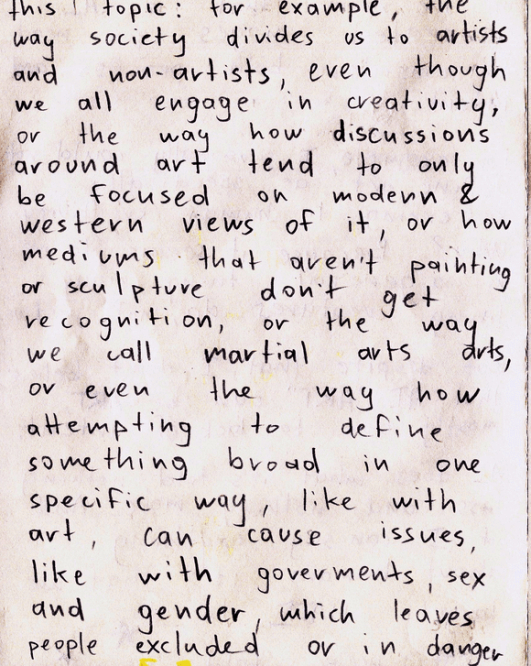 this topic: for example, the
way society divides us to artists
and non-artists, even though
we all engage in creativity;
or the way how discussions
around art tend to only
be focused on modern &
western views of it, or how
mediums that aren't painting
or sculpture don't get
recognition, or the way
we call martial arts arts,
or even the way how
attempting to define
something broad in one
specific way, like with
art, can cause issues,
like with goverments, sex
and gender, which leaves
people excluded or in danger